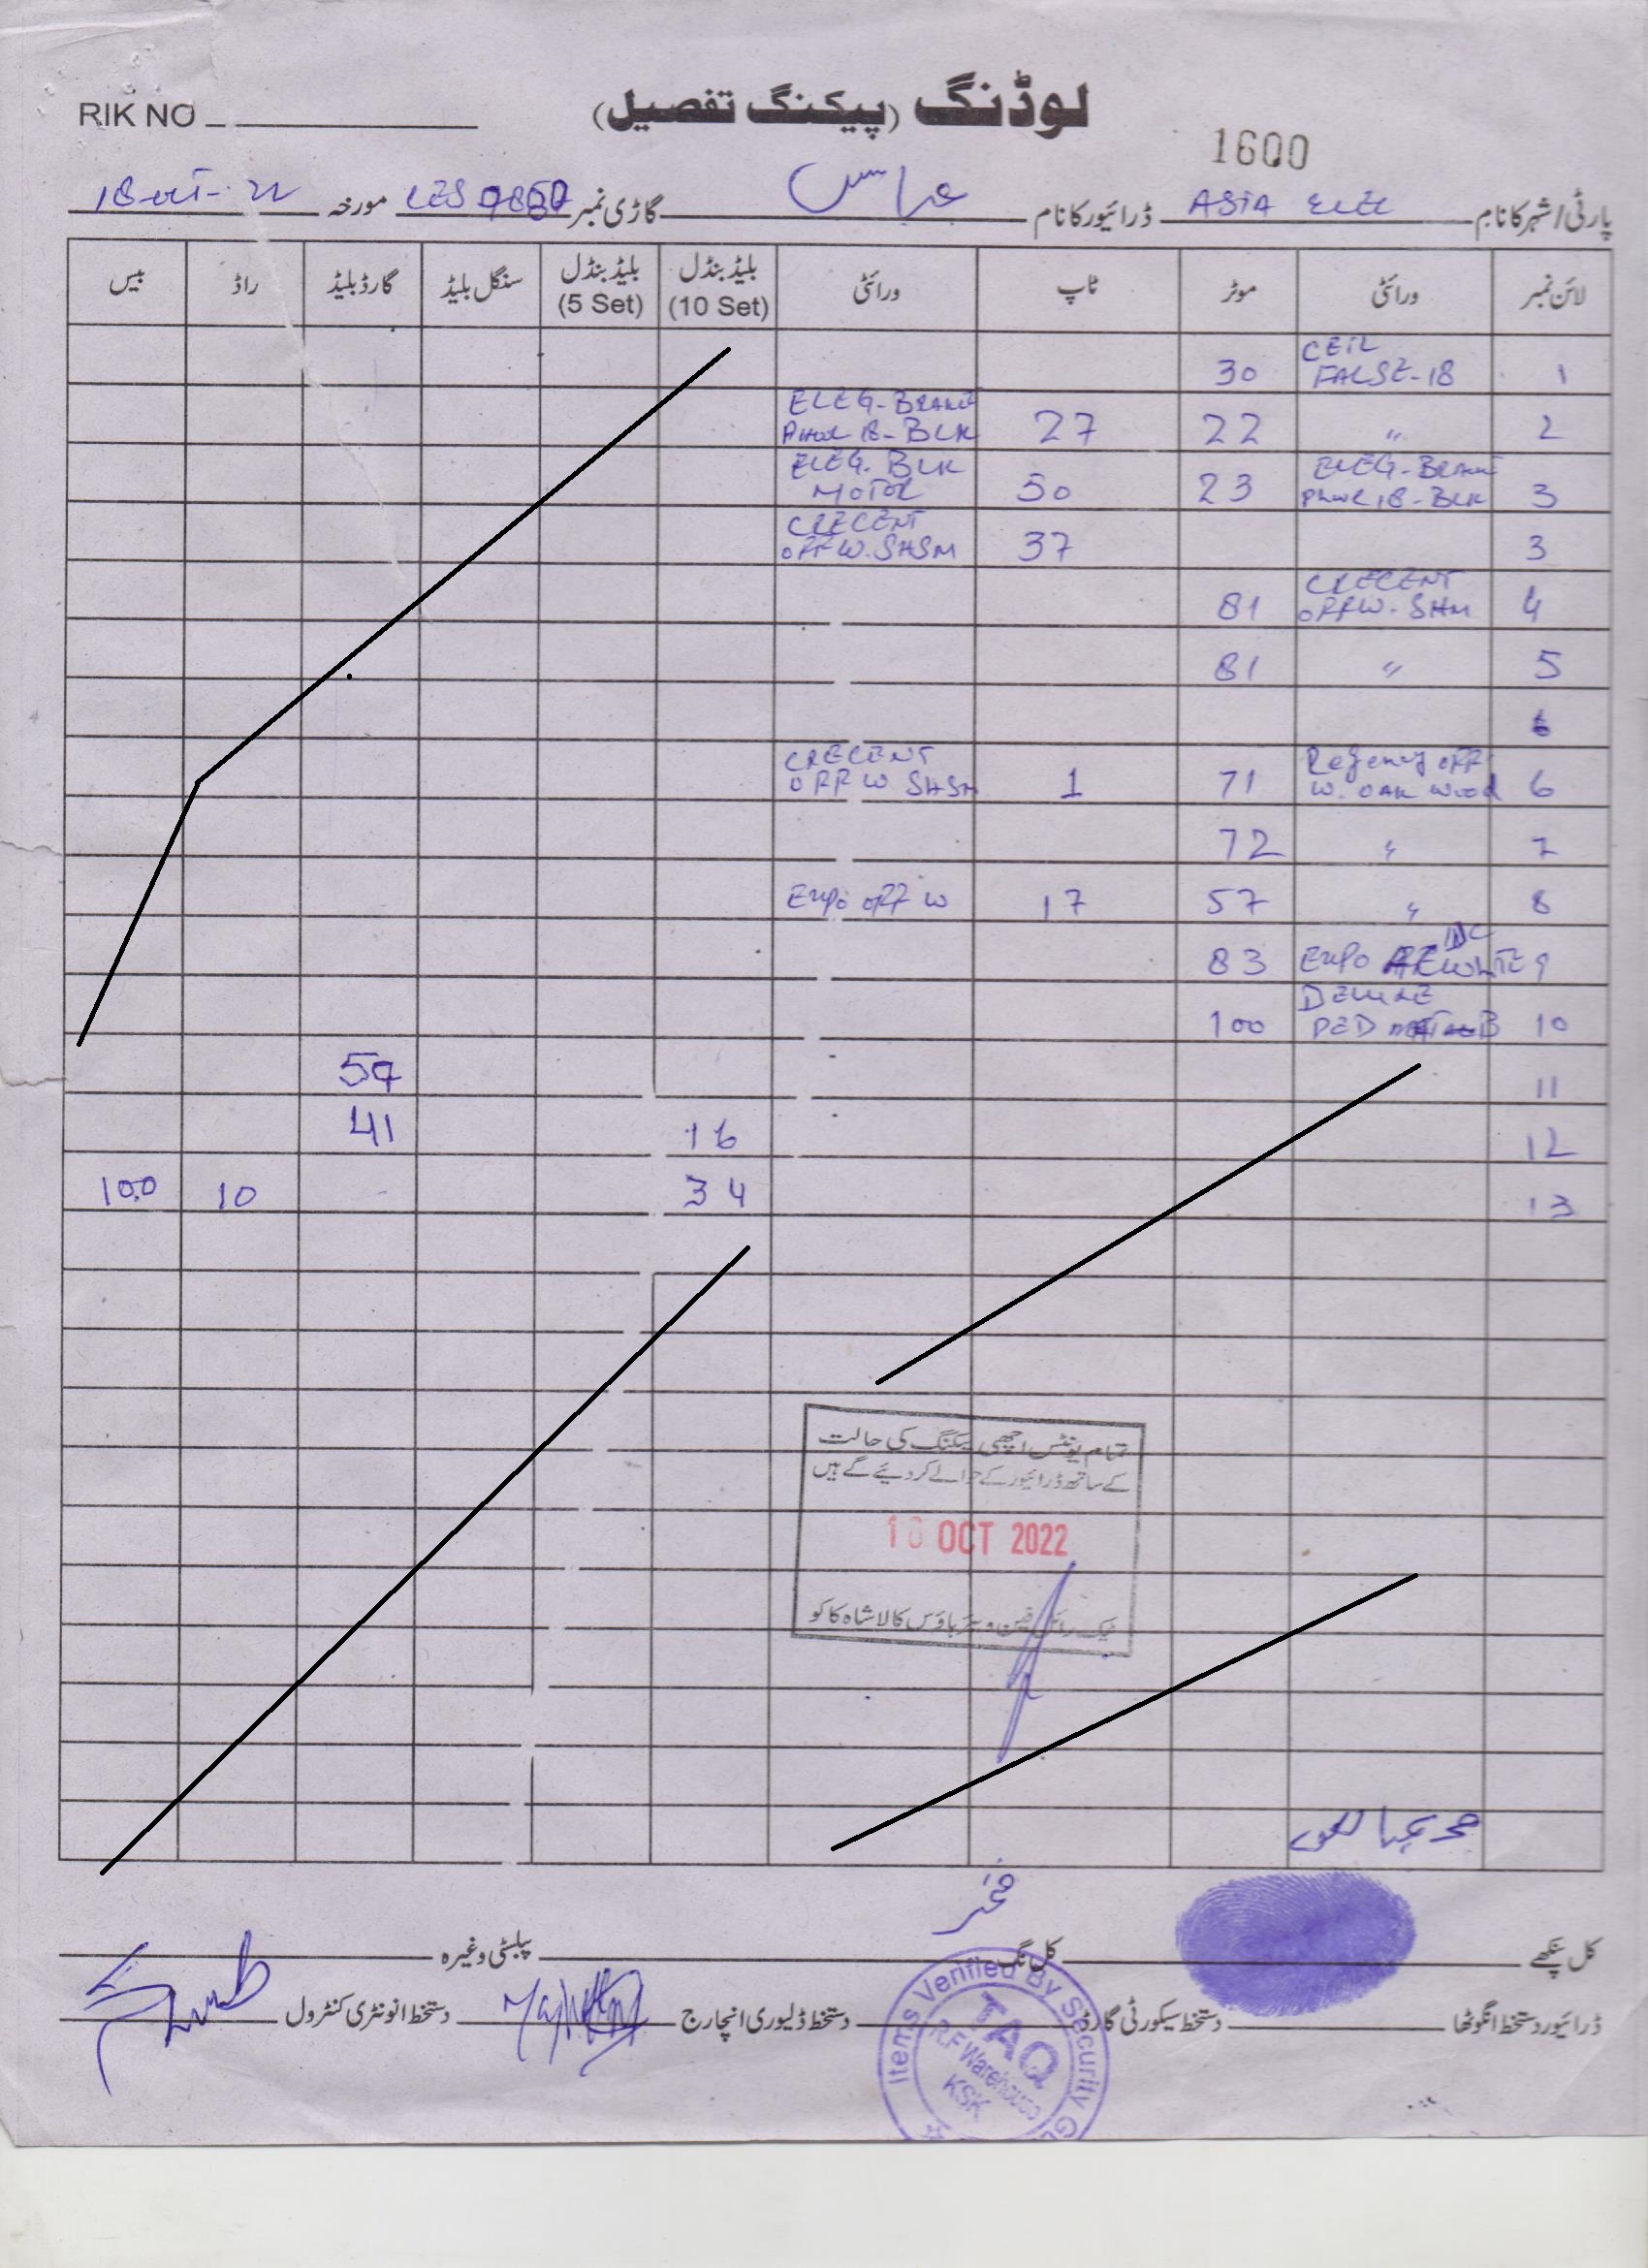 لوڈنگ (پیکنگ تفصیل)
RIK NO
1600
پارٹی/شہر کا نام ASIA ELEC ڈرائیور کا نام عباس گاڑی نمبر LES مورخہ 18-OCT-22
لائن نمبر ورائٹی موٹر ٹاپ ورائٹی بلیڈ بنڈل (10 Set) بلیڈ بنڈل (5 Set) سنگل بلیڈ گارڈ بلیڈ راڈ بیس
1 CEIL FALSE-18 30
2 " 22 27 ELEG- 18-BLK
3 ELEG- 18-BLK 23 50 ELEG. BLK MOTOR
3 37 CRECENT OFFW.SHSM
4 CRECENT OFFW-SHM 81
5 " 81
6
6 Regency OFF W. OAK Wood 71 1 CRECENT OFF W SHSM
7 " 72
8 " 57 17 Expo off W
9 Expo WHITE 83
10 PED 100
11 59
12 16 41
13 34 10 100
تمام یونٹس اچھی پیکنگ کی حالت
کے ساتھ ڈرائیور کے حوالے کر دیئے گے ہیں
OCT 2022
ویئر ہاؤس کالا شاہ کاکو
فخر
کل پنکھے کل نگ پبلسٹی وغیرہ
ڈرائیور دستخط انگوٹھا دستخط سیکورٹی گارڈ دستخط ڈلیوری انچارج دستخط انونٹری کنٹرول
Items Verified By Security
TAQ
R.F Warehouse
KSK